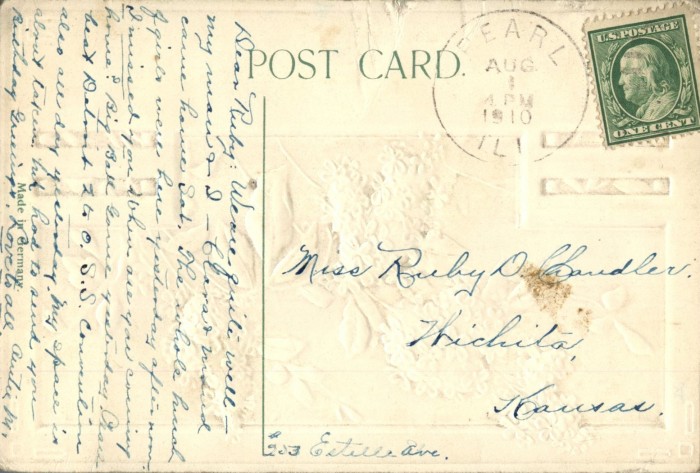 POST CARD.
PEARL
AUG
1
4 PM
1910
ILL
U.S. POSTAGE
ONE CENT
Dear Ruby: We are quite well –
my man & I – Clara & Maud
came home Sat. The whole bunch
of girls were here yesterday afternoon.
I missed you. When are you coming
home? Big Ball Game yesterday Pearl
beat Detroit 2 to 0. S.S. Convention
also all day yesterday. My space is
about taken but had to send you
Birthday Greetings. Love to all
Made in Germany.
Miss Ruby D. Chandler.
Wichita,
Kansas.
#253 Estelle Ave.